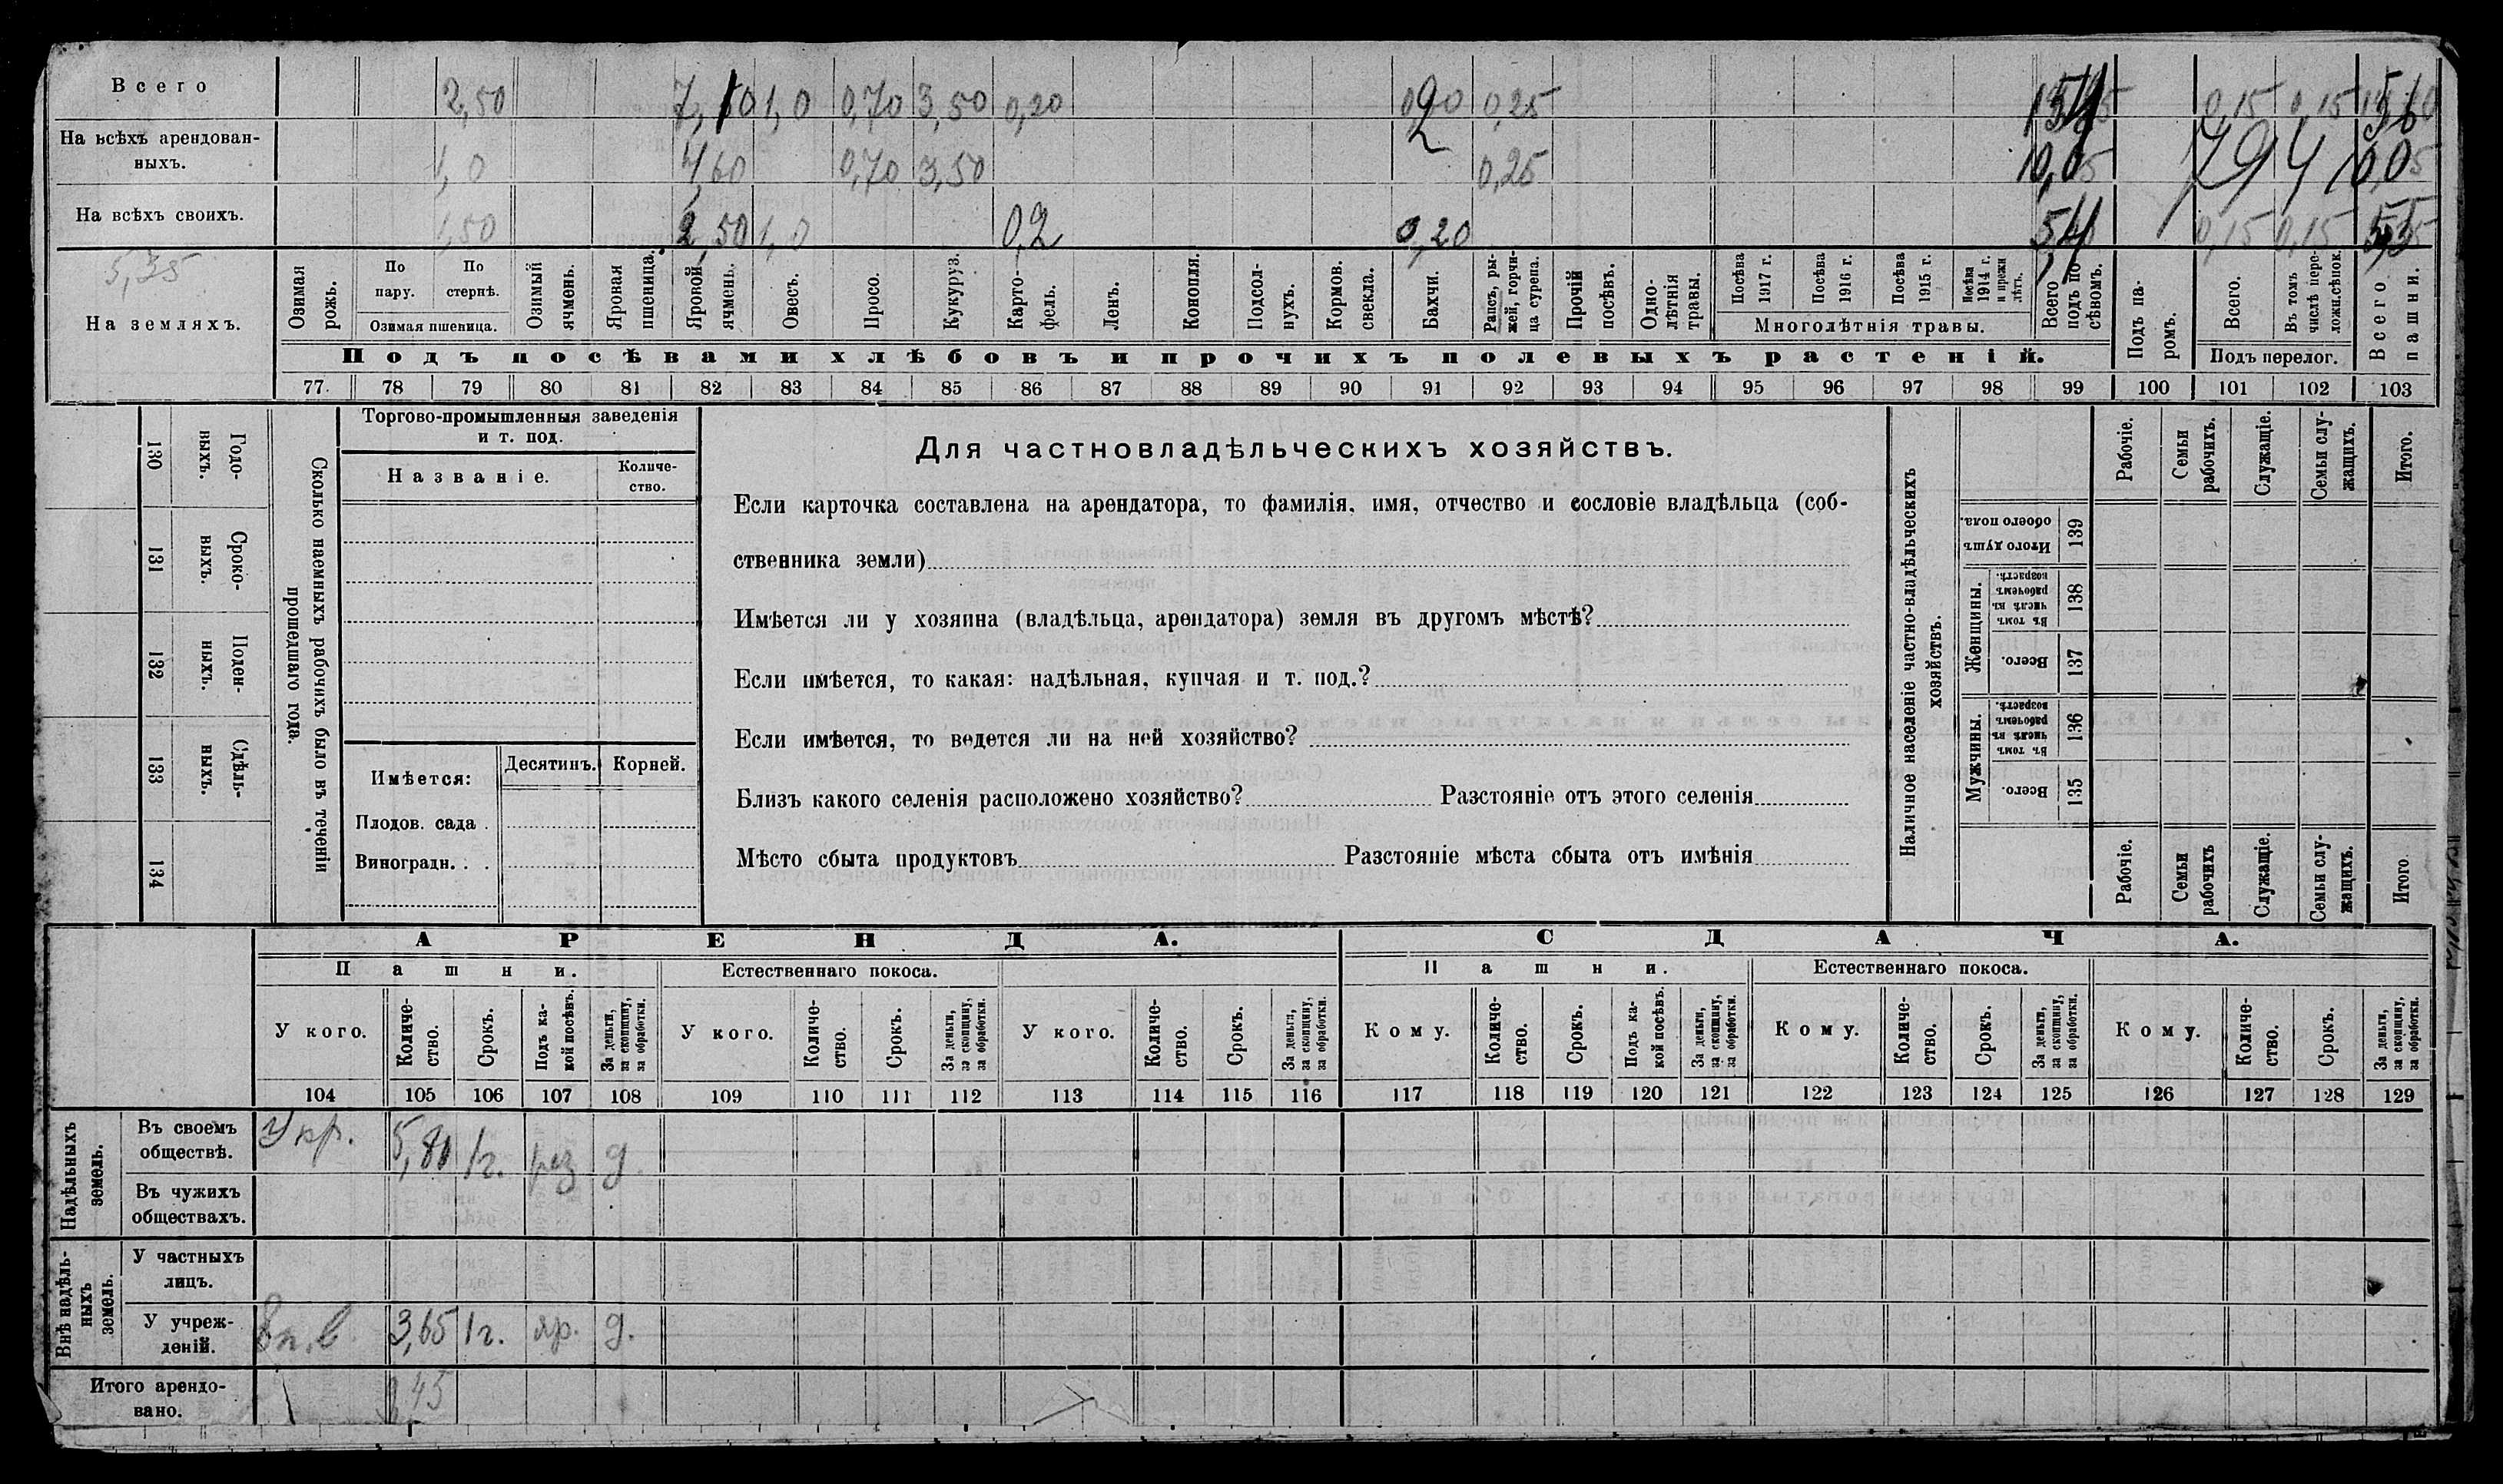 Всего 2,50 1,0 0,70 3,50 0,20 0,25 0,15 0,15
На всѣхъ арендован-
ныхъ. 1,0 4,60 0,70 3,50 0,25 794
На всѣхъ своихъ. 1,50 2,50 1,0 0,2 0,20 0,15 0,15
5,35
На земляхъ.
Озимая рожь.
По пару.
По стернѣ.
Озимая пшеница.
Озимый ячмень.
Яровая пшеница.
Яровой ячмень.
Овесъ.
Просо.
Кукуруз.
Карто-
фель.
Ленъ.
Конопля.
Подсол-
нухъ.
Кормов. свекла.
Бахчи.
Рапсъ, ры-
жей, горчи-
ца сурепа.
Прочій посѣвъ.
Одно-
лѣтнія травы.
Посѣва 1917 г.
Посѣва 1916 г.
Посѣва 1915 г.
Посѣва 1914 г. и прежн лѣтъ.
Многолѣтнія травы.
Всего подъ по-
сѣвомъ.
Подъ па-
ромъ.
Всего.
Въ томъ числѣ пере-
ложн.сѣнок.
Подъ перелог.
Всего пашни.
Подъ посѣвами хлѣбовъ и прочихъ полевыхъ растеній.
77 78 79 80 81 82 83 84 85 86 87 88 89 90 91 92 93 94 95 96 97 98 99 100 101 102 103
130 Годо-
выхъ.
131 Сроко-
выхъ.
132 Поден-
ныхъ.
133 Сдѣль-
ныхъ.
134
Сколько наемныхъ рабочихъ было въ теченіи
прошедшаго года.
Торгово-промышленныя заведенія
и т. под.
Названіе.
Количе-
ство.
Имѣется:
Десятинъ.
Корней.
Плодов. сада .
Виноградн. . .
Для частновладѣльческихъ хозяйствъ.
Если карточка составлена на арендатора, то фамилія, имя, отчество и сословіе владѣльца (соб-
ственника земли)
Имѣется ли у хозяина (владѣльца, арендатора) земля въ другомъ мѣстѣ?
Если имѣется, то какая: надѣльная, купчая и т. под.?
Если имѣется, то ведется ли на ней хозяйство?
Близъ какого селенія расположено хозяйство? Разстояніе отъ этого селенія
Мѣсто сбыта продуктовъ Разстояніе мѣста сбыта отъ имѣнія
Наличное населеніе частно-владѣльческихъ
хозяйствъ.
Рабочіе.
Семьи рабочихъ.
Служащіе.
Семьи слу-
жащихъ.
Итого.
Итого душъ обоего пола. 139
Женщины.
Въ томъ числѣ въ рабочемъ возрастѣ. 138
Всего. 137
Мужчины.
Въ томъ числѣ въ рабочемъ возрастѣ. 136
Всего. 135
Рабочіе.
Семьи рабочихъ
Служащіе.
Семьи слу-
жащихъ.
Итого.
АРЕНДА.
СДАЧА.
Пашни.
Естественнаго покоса.
Пашни.
Естественнаго покоса.
У кого.
Количе-
ство.
Срокъ.
Подъ ка-
кой посѣвъ.
За деньги, за скопщину, за обработки.
У кого.
Количе-
ство.
Срокъ.
За деньги, за скопщину, за обработки.
У кого.
Количе-
ство.
Срокъ.
За деньги, за скопщину, за обработки.
Кому.
Количе-
ство.
Срокъ.
Подъ ка-
кой посѣвъ.
За деньги, за скопщину, за обработки.
Кому.
Количе-
ство.
Срокъ.
За деньги, за скопщину, за обработки.
Кому.
Количе-
ство.
Срокъ.
За деньги, за скопщину, за обработки.
104 105 106 107 108 109 110 111 112 113 114 115 116 117 118 119 120 121 122 123 124 125 126 127 128 129
Надѣльныхъ земель.
Въ своемъ
обществѣ. Укр. 5,80 1г. д.
Въ чужихъ
обществахъ.
Внѣ надѣль-
ныхъ земель.
У частныхъ
лицъ.
У учреж-
деній. 3,65 1г. яр. д.
Итого арендо-
вано. 9,45